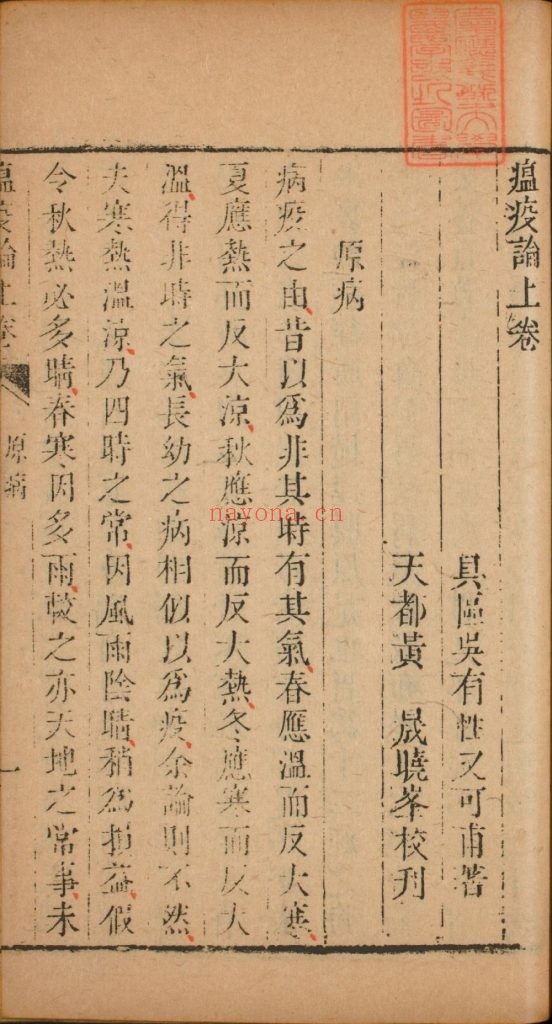 瘟疫論上卷
具區吳有性又可甫著
天都黃 晟曉峯校刊
原病
病疫之由昔以爲非其時有其氣春應溫而反大寒
夏應熱而反大涼秋應涼而反大熱冬應寒而反大
溫得非時之氣長幼之病相似以爲疫余論則不然
夫寒熱溫涼乃四時之常因風雨陰晴稍爲損益假
令秋熱必多晴春寒因多雨較之亦天地之常事未
瘟疫論上卷
原病
一
navona.cn